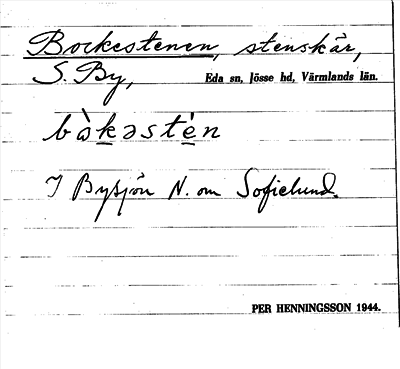 Bockestenen, stenskär,
S. By, Eda sn, Jösse hd, Värmlands län.
bàkəstèn
I Bysjön N. om Sofielund.
PER HENNINGSSON 1944.